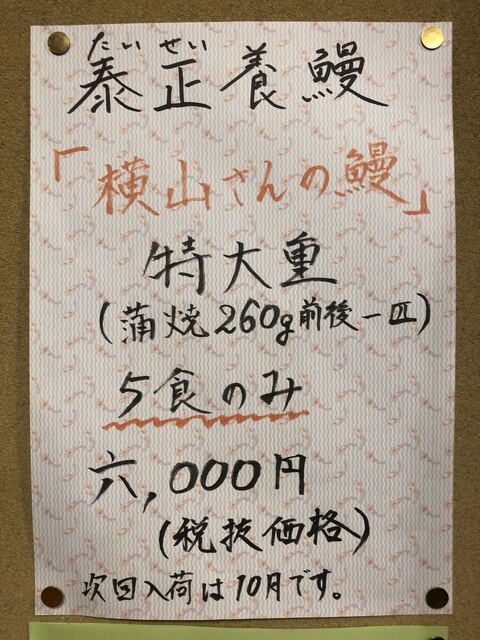 たいせい
泰正養鰻
「横山さんの鰻」
特大重
(蒲焼260g前後一匹)
5食のみ
六,000円
(税抜価格)
次回入荷は10月です。